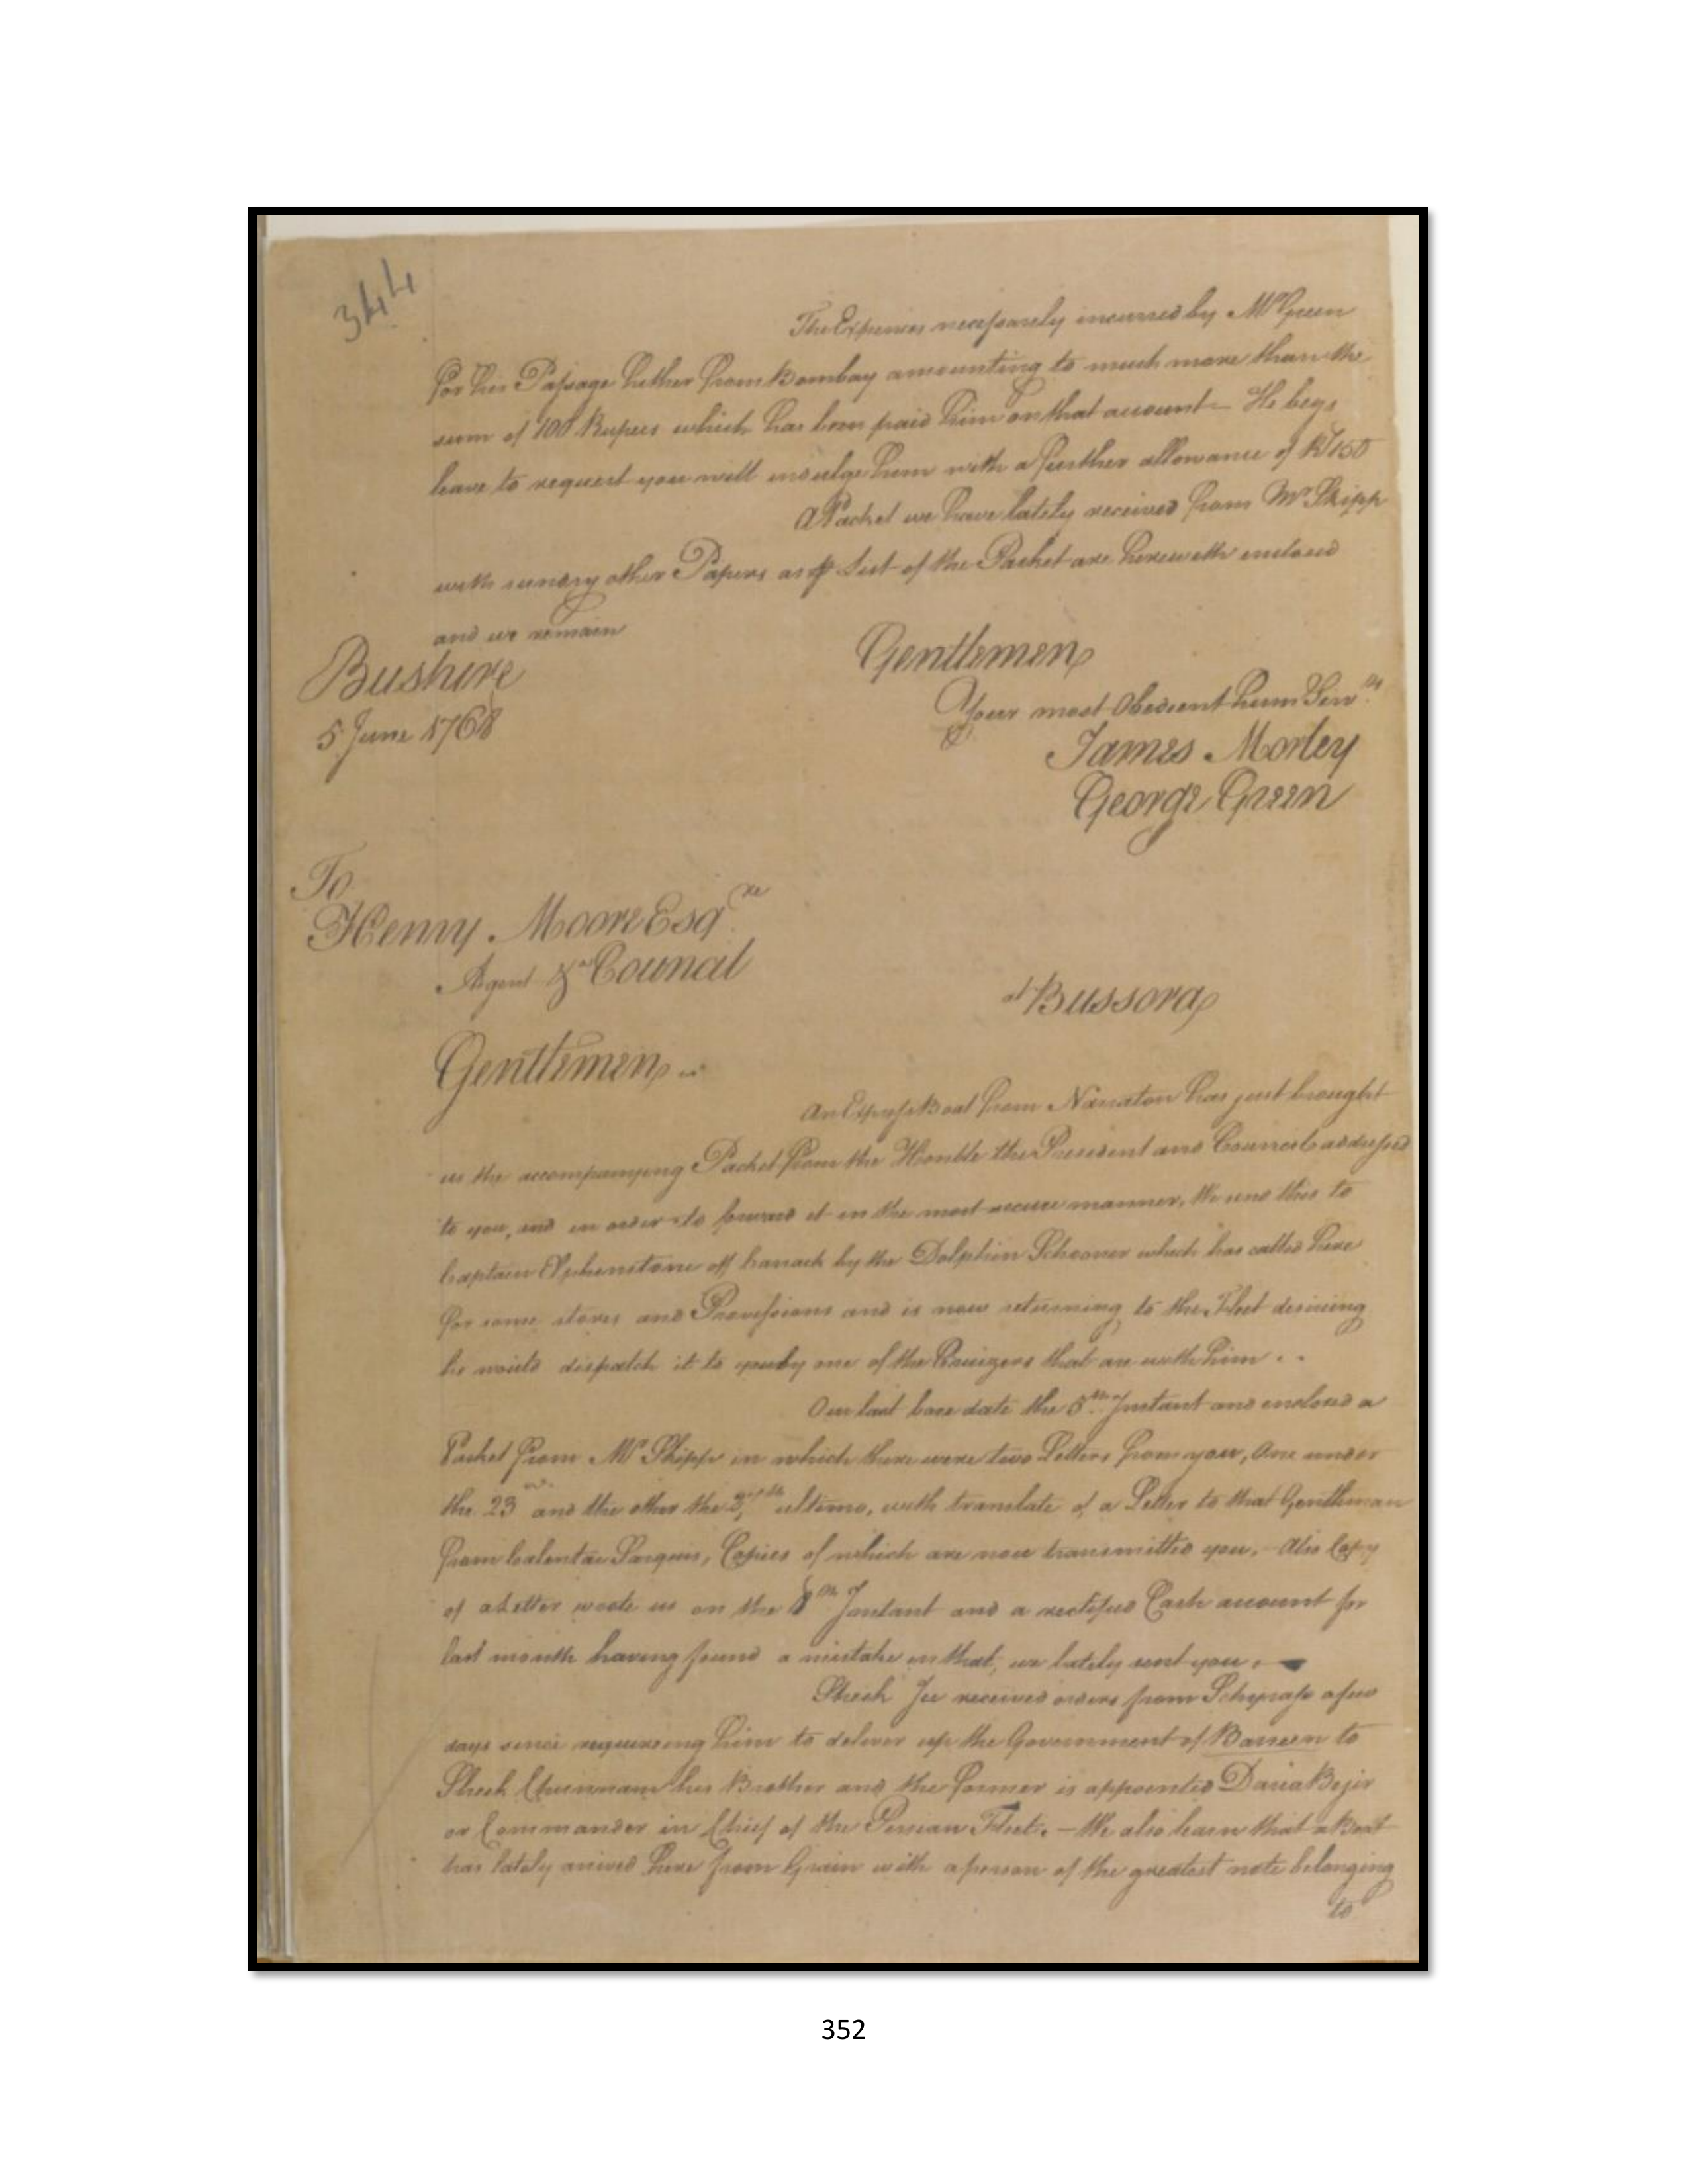 344
The Expences necessarely incurred by Mr Green
for his Passage hither from Bombay amounting to much more than the
sum of 100 Rupees which has been paid him on that account He begs
leave to request you will indulge him with a further allowance of Rs 150
A Packet we have lately received from Mr Skipp
with sundry other Papers as List of the Packet are herewith enclosed
and we remain
Gentlemen
Bushire
Your most Obedient hum Servts
5 June 1768
James Morley
George Green
To
Henry Moore Esqre
Agent &ca Council
at Bussora
Gentlemen
An Express Boat from has just brought
us the accompanying Packet from the Honble the President and Council addressed
to you, and in order to forward it in the most secure manner, We send this to
Captain off Carrack by the Dolphin Schooner which has called here
for some stores and Provissions and is now returning to the Fleet desiring
he would dispatch it to you by one of the that are with him . .
Our last bore date the 5th Instant and enclosed a
Packet from Mr Skipp in which there were two Letters from you, One under
the 23d and the other the ultimo, with translate of a Letter to that Gentleman
from Calentar Sarquis, Copies of which are now transmitted you, Also Copy
of a Letter wrote us on the 8th Instant and a rectified Cash account for
last month having found a mistake in that, we lately sent you.
Sheek received orders from Schyrass a few
days since requireing him to deliver up the Government of Bareen to
Sheek his Brother and the former is appointed Daria Begir
or Commander in Chief of the Persian Fleet. — We also learn that a Boat
has lately arived here from Grain with a person of the greatest note belonging
to
352